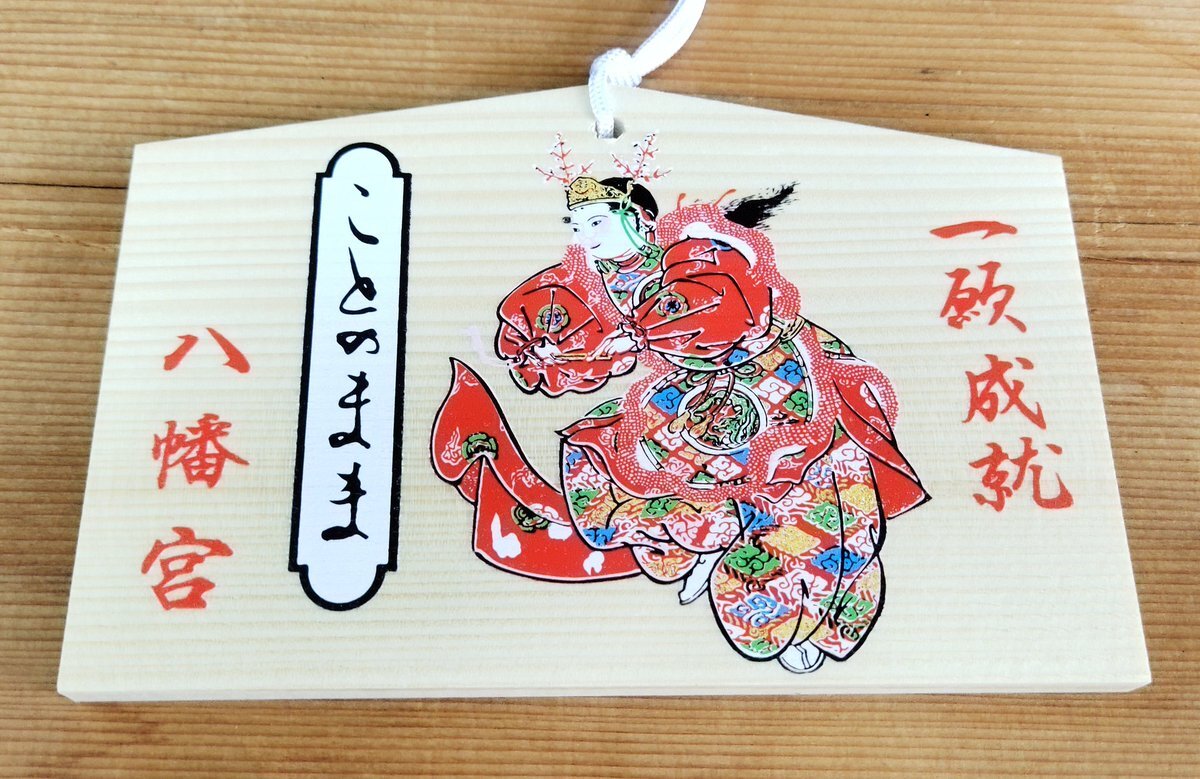 一願成就
ことのまま
八幡宮